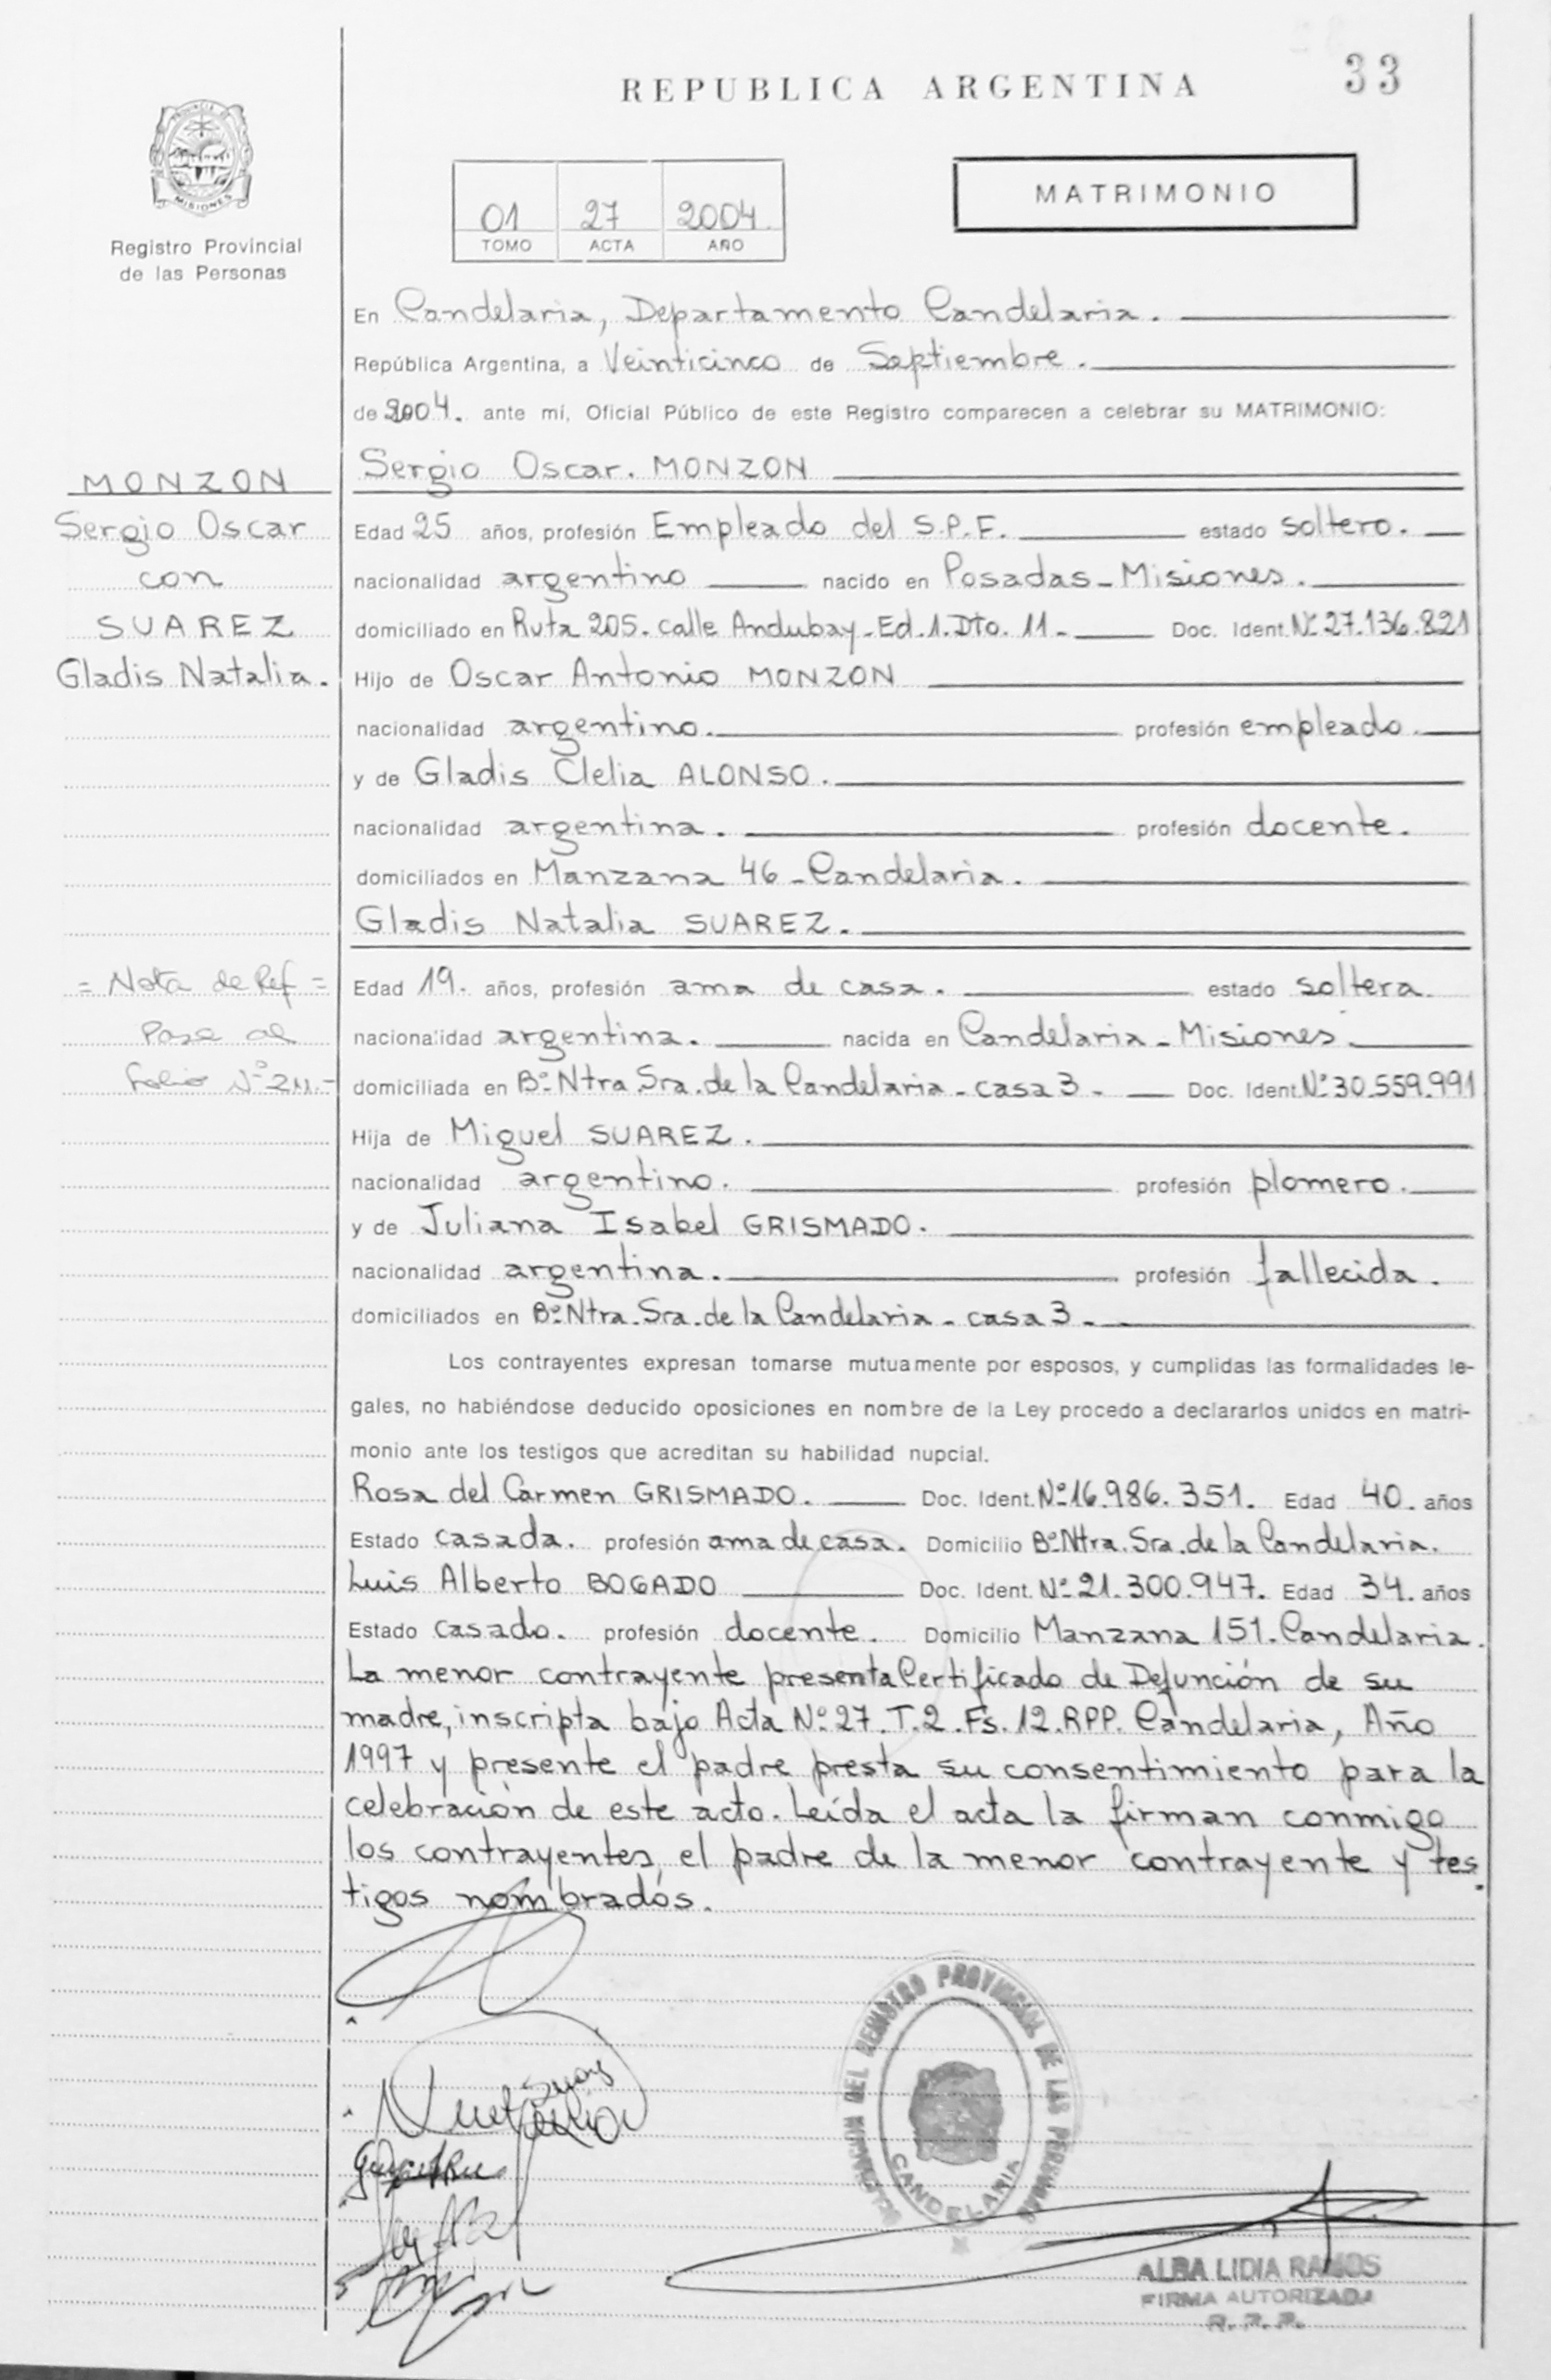 33
REPUBLICA ARGENTINA
PROVINCIA
MISIONES
Registro Provincial
de las Personas
01 27 2004
TOMO ACTA AÑO
MATRIMONIO
En Candelaria, Departamento Candelaria.
República Argentina, a Veinticinco de Septiembre.
de 2004. ante mí, Oficial Público de este Registro comparecen a celebrar su MATRIMONIO:
MONZON
Sergio Oscar
con
SUAREZ
Gladis Natalia.
Sergio Oscar. MONZON
Edad 25 años, profesión Empleado del S.P.F. estado soltero.
nacionalidad argentino nacido en Posadas - Misiones.
domiciliado en Ruta 205. calle Andubay - Ed. 1. Dto. 11 - Doc. Ident. Nº 27.136.821
Hijo de Oscar Antonio MONZON
nacionalidad argentino. profesión empleado.
y de Gladis Clelia ALONSO.
nacionalidad argentina. profesión docente.
domiciliados en Manzana 46 - Candelaria.
Gladis Natalia SUAREZ.
= Nota de Ref =
Pase al
folio Nº 211.-
Edad 19. años, profesión ama de casa. estado soltera.
nacionalidad argentina. nacida en Candelaria - Misiones
domiciliada en Bº Ntra. Sra. de la Candelaria - casa 3 - Doc. Ident. Nº 30.559.991
Hija de Miguel SUAREZ.
nacionalidad argentino. profesión plomero.
y de Juliana Isabel GRISMADO.
nacionalidad argentina. profesión fallecida.
domiciliados en Bº Ntra. Sra. de la Candelaria - casa 3 -
Los contrayentes expresan tomarse mutuamente por esposos, y cumplidas las formalidades le-
gales, no habiéndose deducido oposiciones en nombre de la Ley procedo a declararlos unidos en matri-
monio ante los testigos que acreditan su habilidad nupcial.
Rosa del Carmen GRISMADO. Doc. Ident. Nº 16.986.351. Edad 40. años
Estado casada. profesión ama de casa. Domicilio Bº Ntra. Sra. de la Candelaria.
Luis Alberto BOGADO Doc. Ident. Nº 21.300.947. Edad 34. años
Estado casado. profesión docente. Domicilio Manzana 151. Candelaria.
La menor contrayente presenta Certificado de Defunción de su
madre, inscripta bajo Acta Nº 27. T. 2. Fs. 12. RPP. Candelaria, Año
1997 y presente el padre presta su consentimiento para la
celebración de este acto. Leída el acta la firman conmigo
los contrayentes, el padre de la menor contrayente y tes
tigos nombrados.
DEL REGISTRO PROVINCIAL DE LAS PERSONAS
CANDELARIA
ALBA LIDIA RAMOS
FIRMA AUTORIZADA
R.P.P.